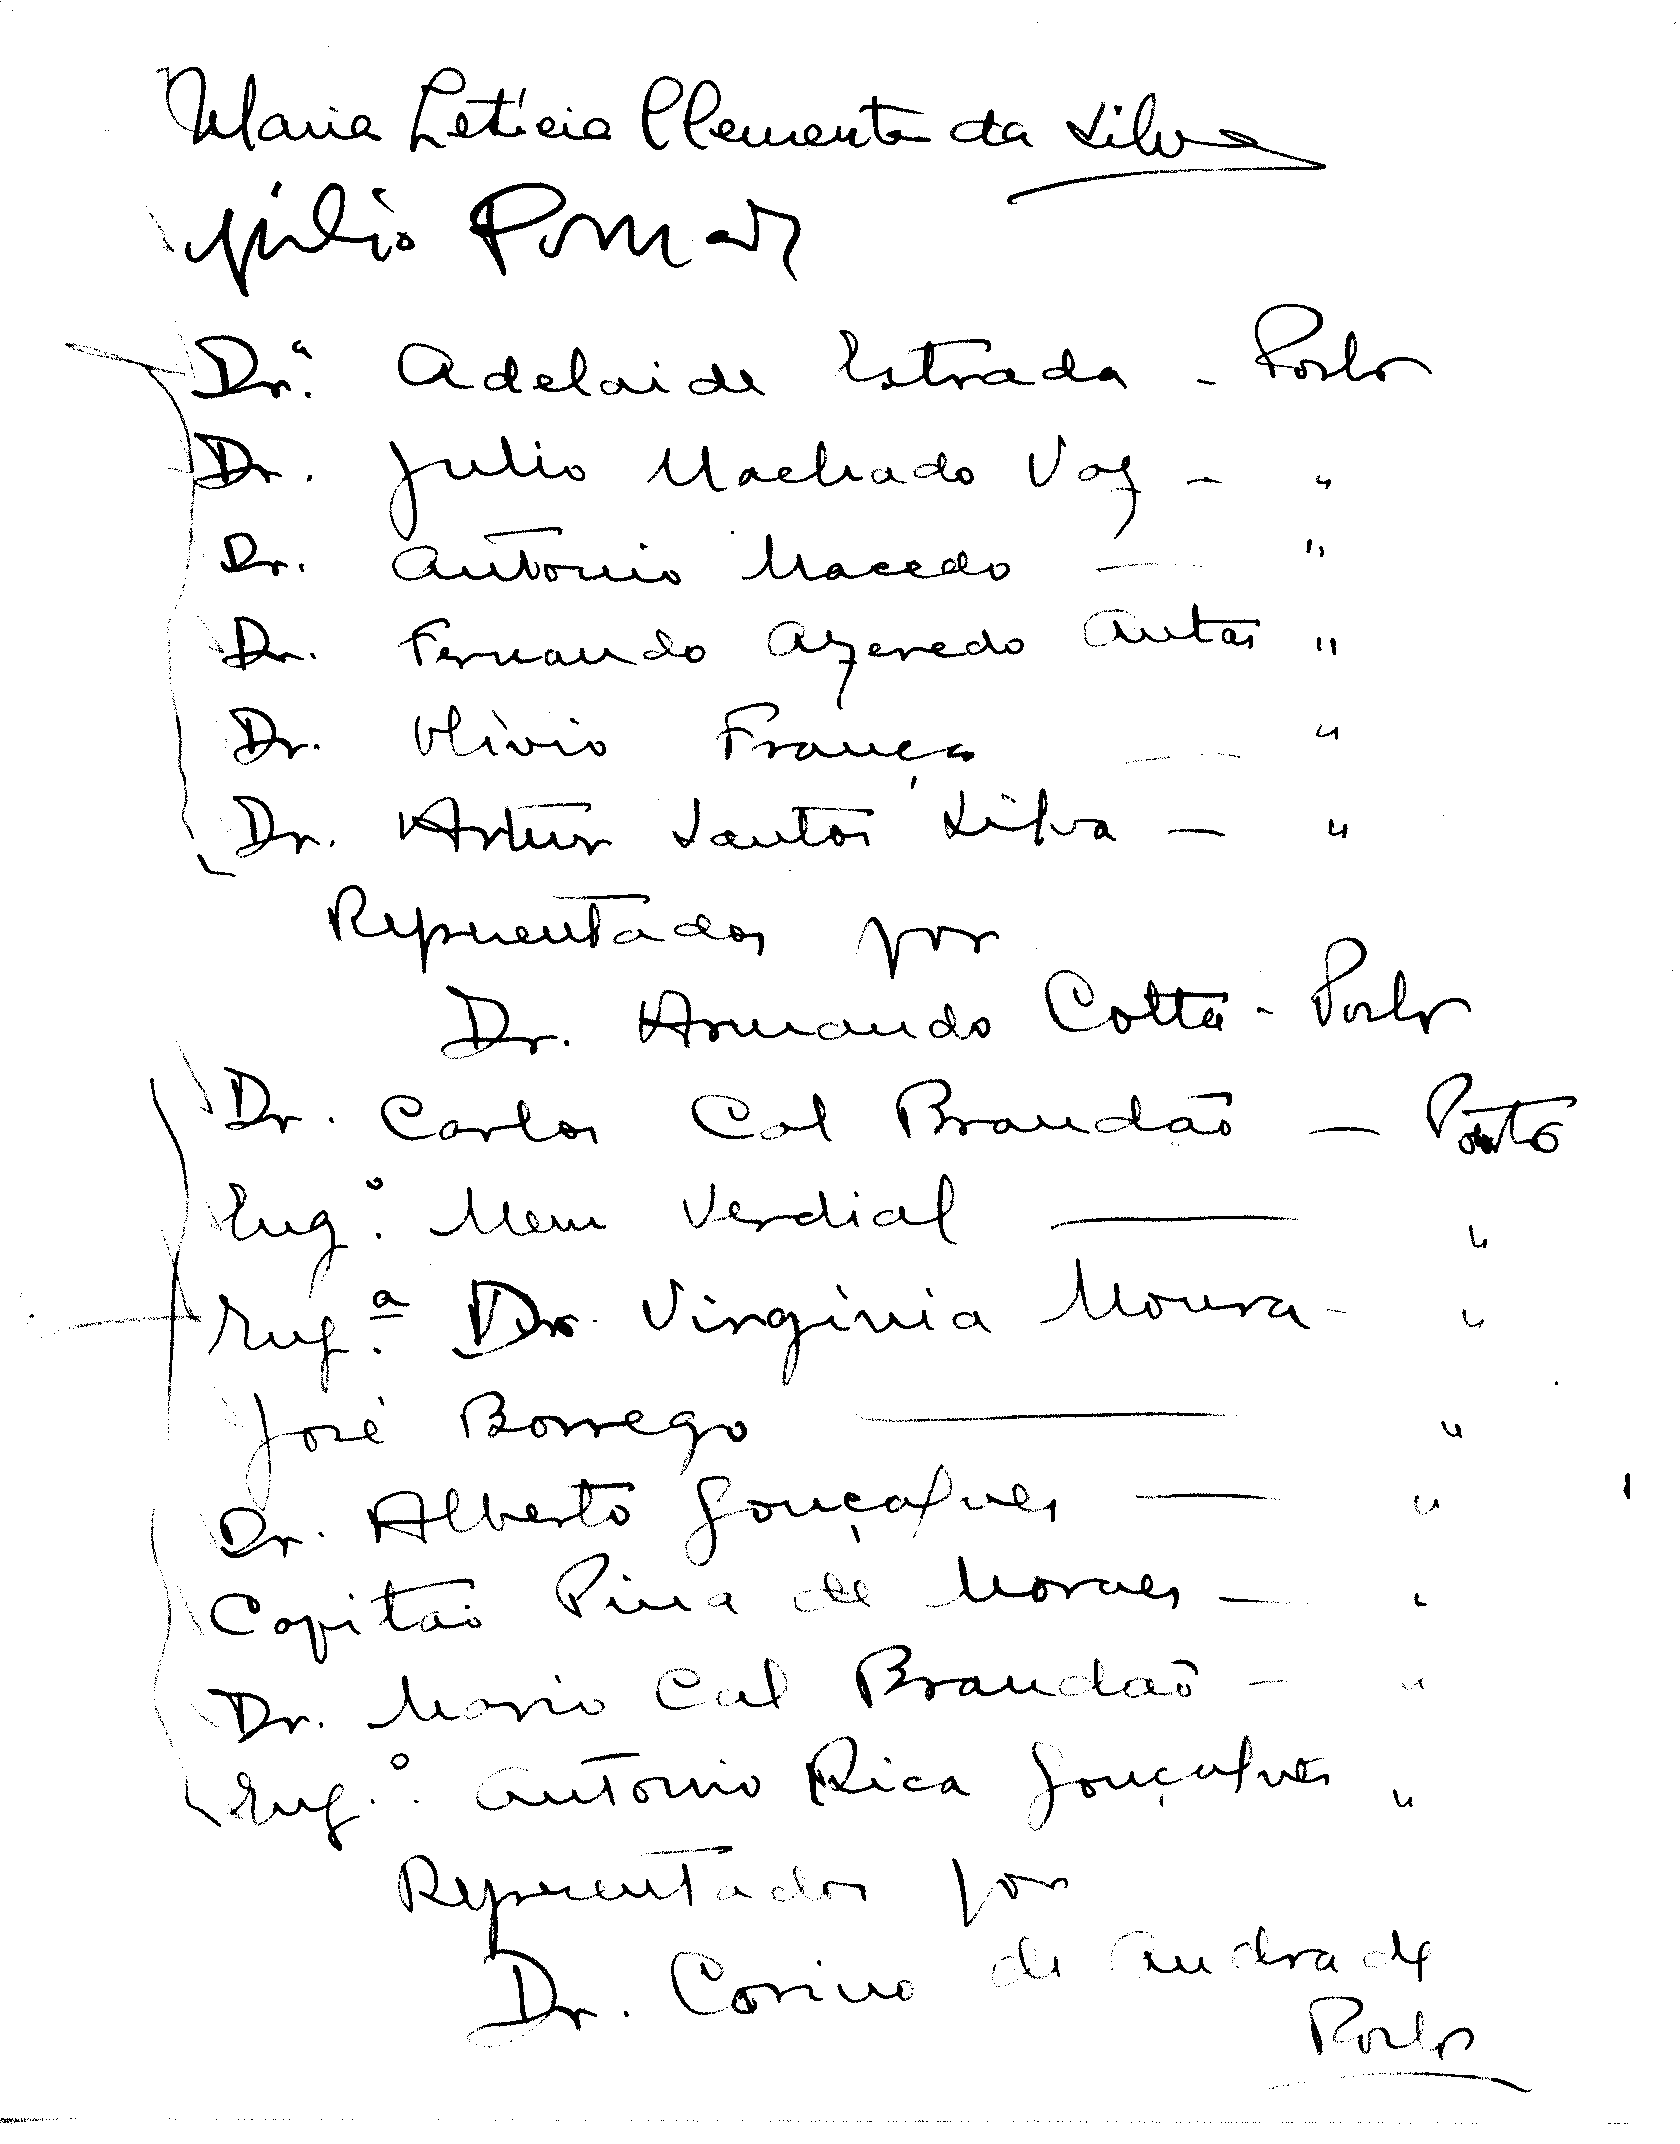 Maria Letícia Clemente da Silva
Júlio Pomar
Dr.ª Adelaide Estrada - Porto
Dr. Julio Machado Vaz - "
Dr. Antonio Macedo - "
Dr. Fernando Azeredo Antas "
Dr. Olívio França - "
Dr. Artur Santos Silva - "
Representados por
Dr. Armando Cotta - Porto
Dr. Carlos Cal Brandão - Porto
Eng.º Mem Verdial - "
Eng.ª Dr. Virginia Moura - "
José Borrego - "
Dr. Alberto Gonçalves - "
Capitão Pina de Moraes - "
Dr. Mario Cal Brandão - "
Eng.º Antonio Rica Gonçalves "
Representados por
Dr. Corino de Andrade
Porto